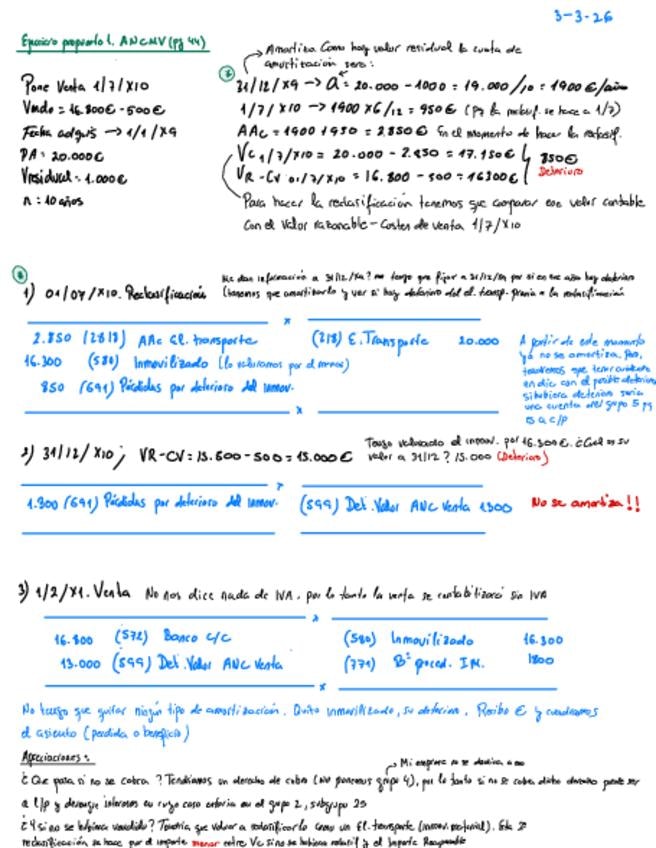 3-3-26
Ejercicio propuesto 1. ANCMV (pg 44)
Pone Venta 1/7/X10
Vendo = 16.800€ - 500€
Fecha adquis → 1/1/X9
PA = 20.000€
Vresidual = 1.000€
n = 10 años
Amortiza. Como hay valor residual la cuota de
amortización será:
31/12/X9 → a = 20.000 - 1000 = 19.000/10 = 1900€/año
1/7/X10 → 1900 x 6/12 = 950€ (pq la reclasif. se hace a 1/7)
AAc = 1900 + 950 = 2.850€ En el momento de hacer la reclasif.
Vc 1/7/X10 = 20.000 - 2.850 = 17.150€
VR - CV 01/7/X10 = 16.800 - 500 = 16300€
850€
Deterioro
Para hacer la reclasificación tenemos que comparar ese valor contable
con el Valor razonable - Costes de venta 1/7/X10
1) 01/07/X10. Reclasificación
Me dan información a 31/12/X9? me tengo que fijar a 31/12/X9 por si en ese año hay deterioro
(tenemos que amortizarlo y ver si hay deterioro del el. transp. previa a la reclasificación
x
2.850 (2818) AAc El. transporte (218) E. Transporte 20.000
16.300 (580) Inmovilizado (lo valoramos por el menor)
850 (691) Pérdidas por deterioro del inmov.
x
A partir de este momento
ya no se amortiza. Pero,
tendremos que tener cuidado
en dic con el posible deterioro
si hubiera deterioro sería
una cuenta del grupo 5 pq
es a c/p
2) 31/12/X10; VR - CV = 15.500 - 500 = 15.000€
Tengo valorado el inmov. por 16.300€. ¿Cuál es su
valor a 31/12? 15.000 (Deterioro)
1.300 (691) Pérdidas por deterioro del inmov. (599) Det. Valor ANC Venta 1300
No se amortiza!!
3) 1/2/X1. Venta No nos dice nada de IVA, por lo tanto la venta se contabilizará sin IVA
x
16.800 (572) Banco c/c (580) Inmovilizado 16.300
13.000 (599) Det. Valor ANC Venta (771) Bº proced. IM. 1800
x
No tengo que quitar ningún tipo de amortización. Quito inmovilizado, su deterioro. Recibo € y cuadramos
el asiento (perdida o beneficio)
Apreciaciones:
Mi empresa no se dedica a eso
¿Que pasa si no se cobra? Tendríamos un derecho de cobro (No ponemos grupo 4), por lo tanto si no se cobra dicho derecho puede ser
a l/p y devengar intereses en cuyo caso estaría en el grupo 2, subgrupo 25
¿Y si no se hubiera vendido? Tendría que volver a reclasificarlo como un El. transporte (inmov. material). Esta
reclasificación se hace por el importe menor entre Vc si no se hubiera reclasif y el Importe Recuperable